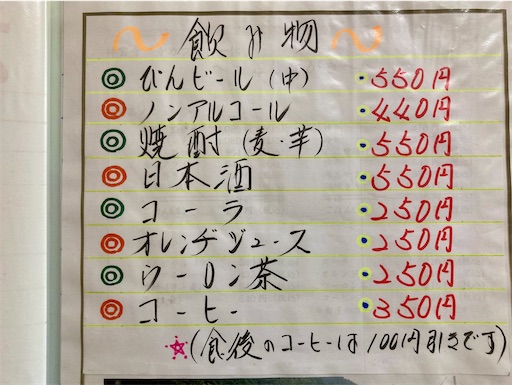 〜 飲み物 〜
◎ びんビール(中) ・550円
◎ ノンアルコール ・440円
◎ 焼酎(麦・芋) ・550円
◎ 日本酒 ・550円
◎ コーラ ・250円
◎ オレンヂジュース ・250円
◎ ウーロン茶 ・250円
◎ コーヒー ・350円
☆(食後のコーヒーは100円引きです)